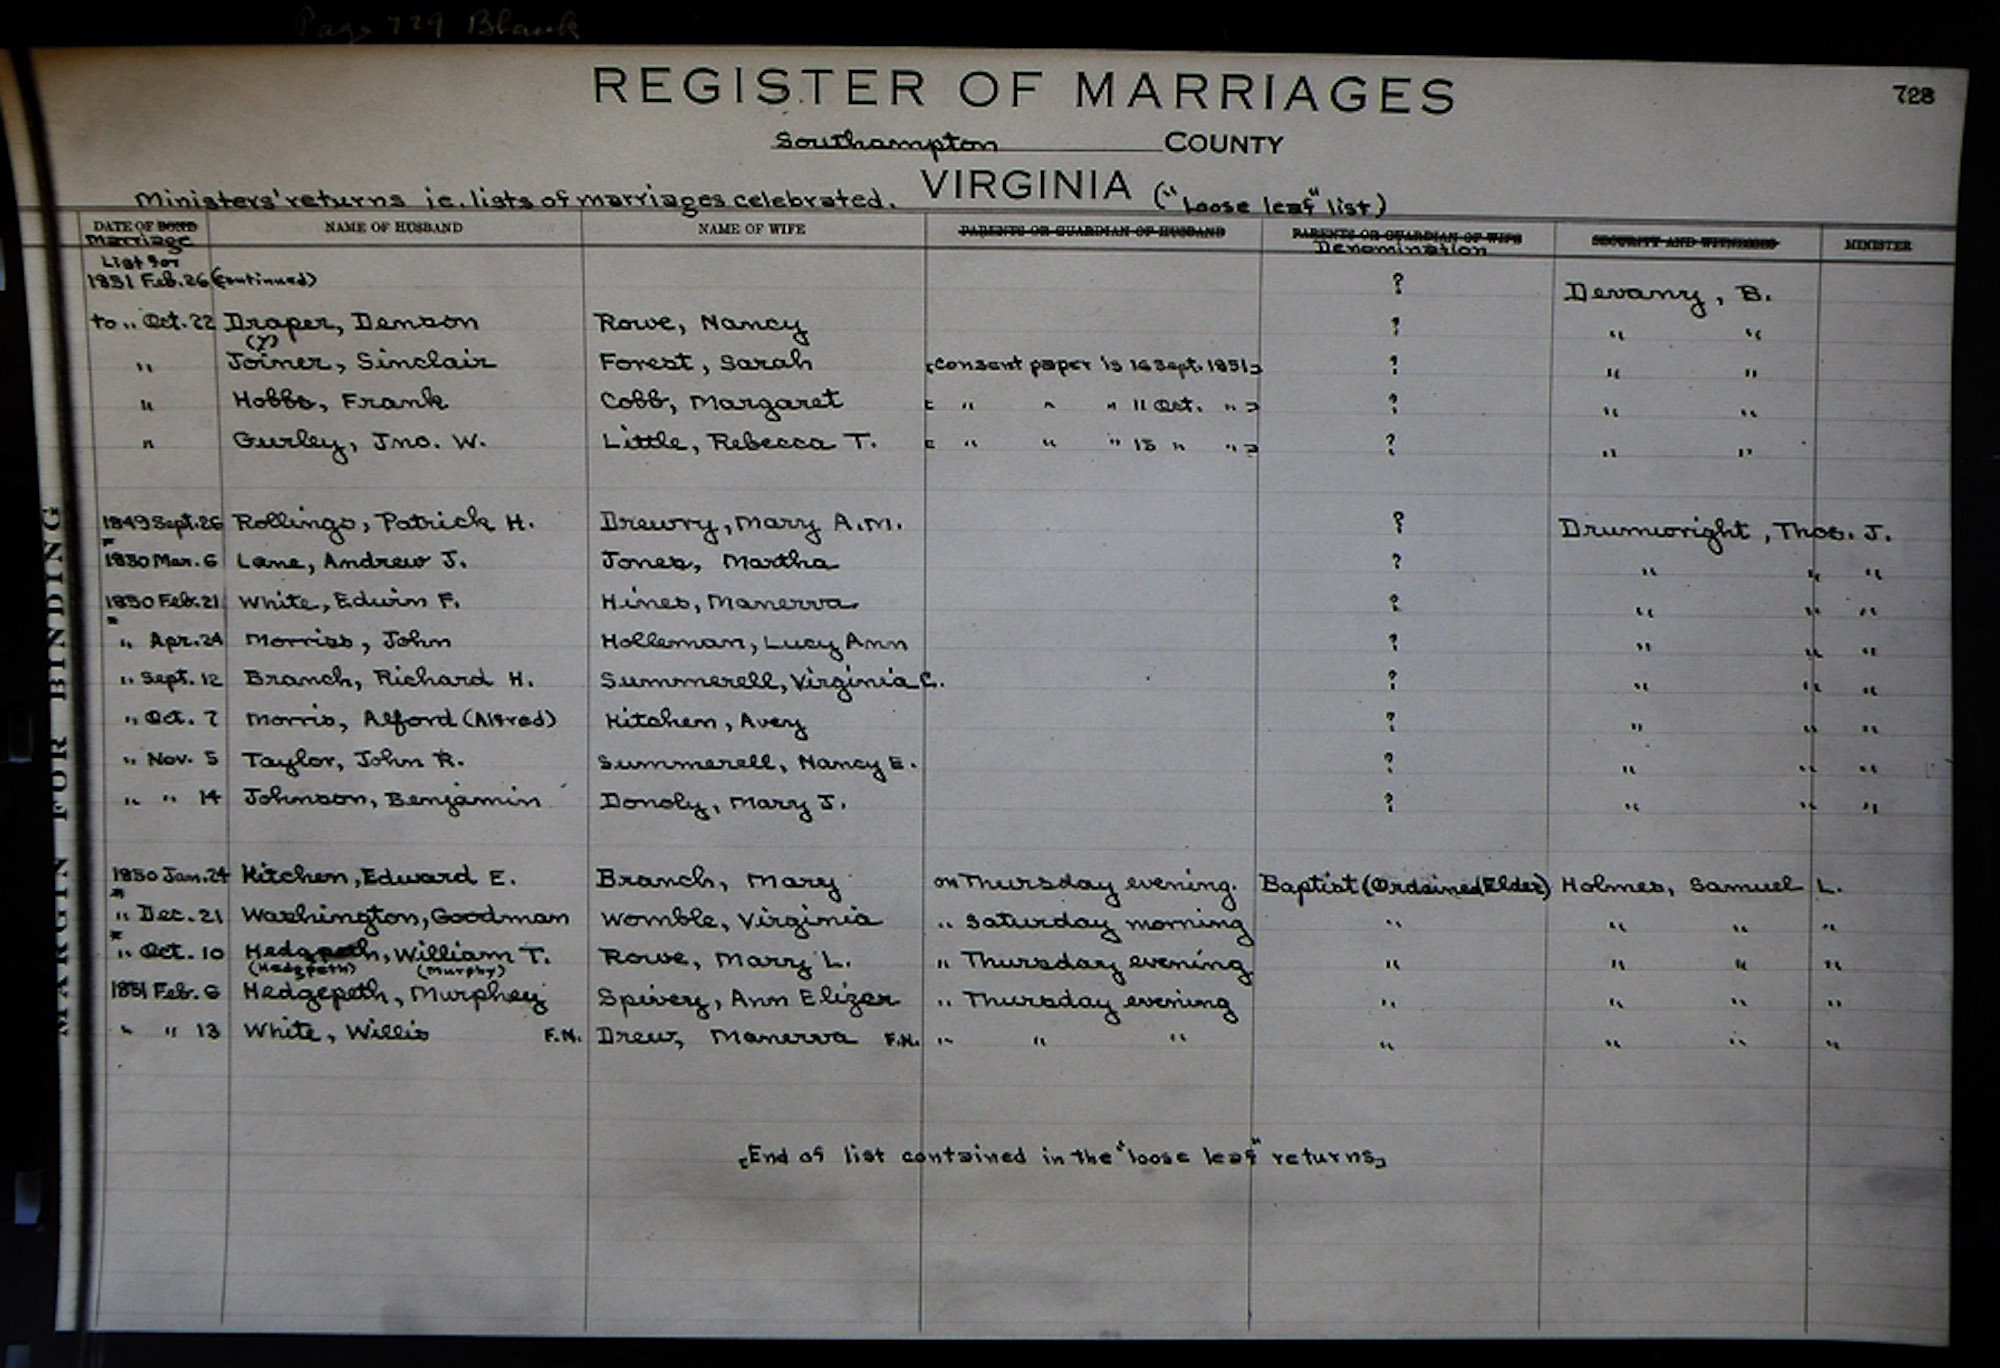 Page 729 Blank
REGISTER OF MARRIAGES 728
Southampton COUNTY
Ministers' returns ie. lists of marriages celebrated. VIRGINIA ("Loose leaf" list)
DATE OF BOND NAME OF HUSBAND NAME OF WIFE PARENTS OR GUARDIAN OF HUSBAND PARENTS OR GUARDIAN OF WIFE SECURITY AND WITNESSES MINISTER
Marriage Denomination
List for
1851 Feb. 26 (continued) ? Devany, B.
to " Oct. 22 Draper, Denson Rowe, Nancy ? " "
(y)
" Joiner, Sinclair Forest, Sarah [Consent paper is 16 Sept. 1851] ? " "
" Hobbs, Frank Cobb, Margaret [ " " " 11 Oct. " ] ? " "
" Gurley, Jno. W. Little, Rebecca T. [ " " " 15 " " ] ? " "
1849 Sept. 26 Rollings, Patrick H. Drewry, Mary A.M. ? Drumwright, Thos. J.
1850 Mar. 6 Lane, Andrew J. Jones, Martha ? " " "
1850 Feb. 21 White, Edwin F. Hines, Manerva ? " " "
" Apr. 24 Morriss, John Holleman, Lucy Ann ? " " "
" Sept. 12 Branch, Richard H. Summerell, Virginia C. ? " " "
" Oct. 7 Morris, Alford (Alfred) Kitchen, Avey ? " " "
" Nov. 5 Taylor, John R. Summerell, Nancy E. ? " " "
" " 14 Johnson, Benjamin Donoly, Mary J. ? " " "
1850 Jan. 24 Kitchen, Edward E. Branch, Mary on Thursday evening. Baptist (Ordained Elder) Holmes, Samuel L.
" Dec. 21 Washington, Goodman Womble, Virginia " Saturday morning " " " "
" Oct. 10 Hedgpeth, William T. Rowe, Mary L. " Thursday evening " " " "
(Hedgpeth) (Murphy)
1851 Feb. 6 Hedgepeth, Murphey Spivey, Ann Elizer " Thursday evening " " " "
" " 13 White, Willis F.N. Drew, Manerva F.N. " " " " " " "
[End of list contained in the "loose leaf" returns]
MARGIN FOR BINDING